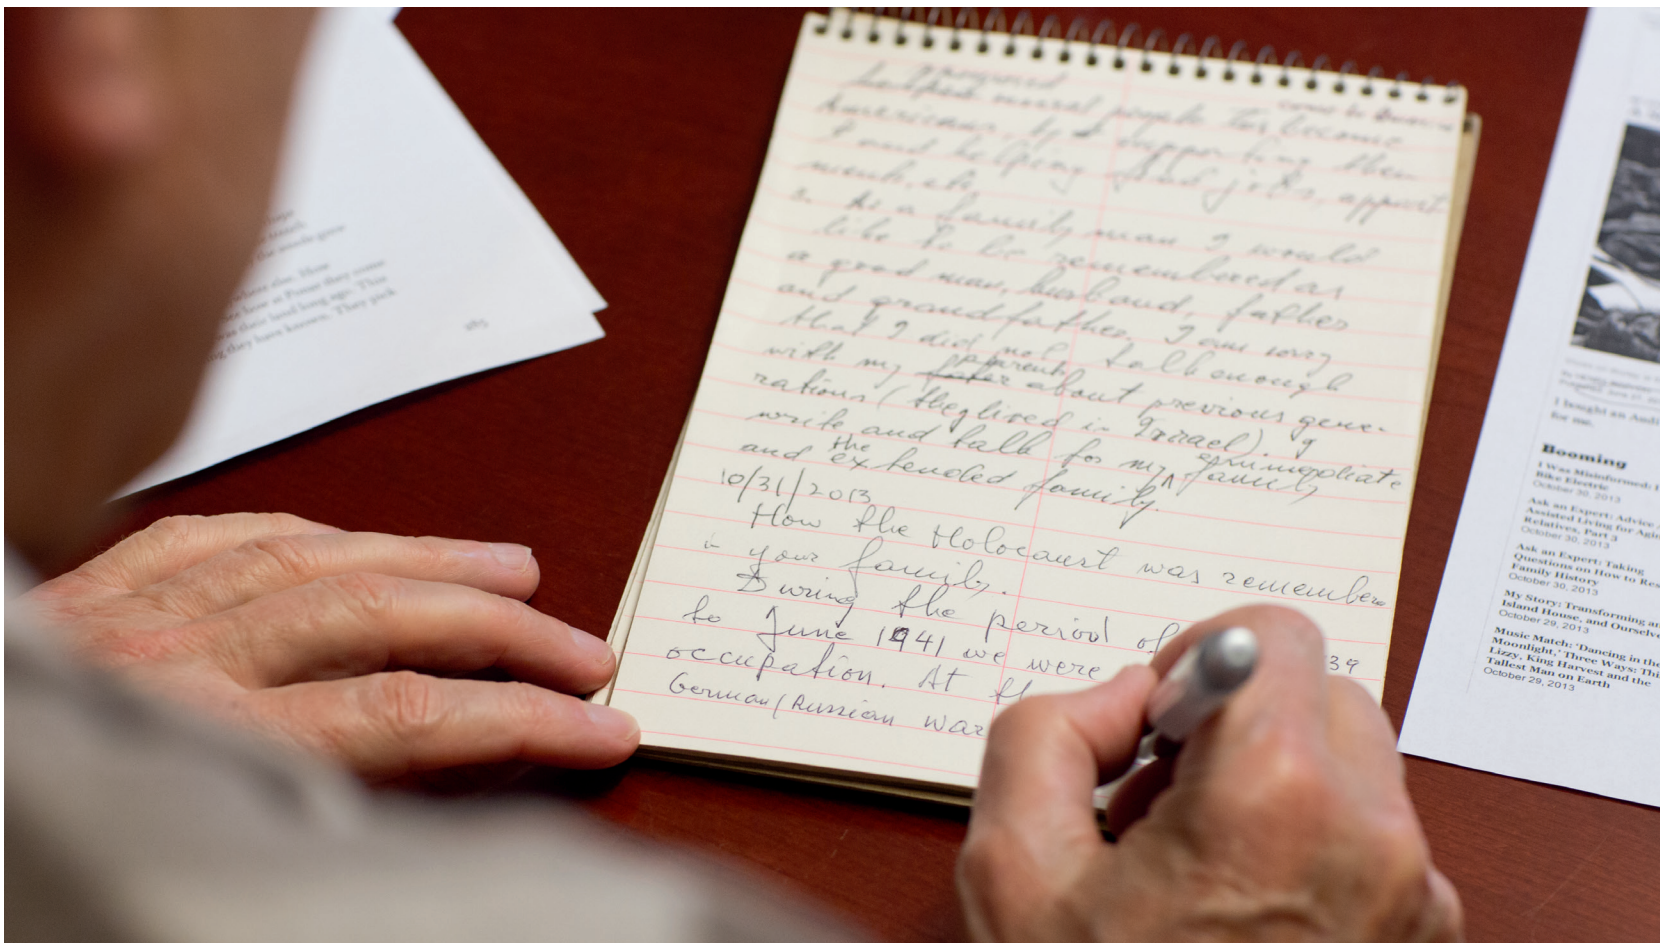 several people to become
Americans, by supporting them
and helping find jobs, apart-
ments, etc
2. As a family man I would
like to be remembered as
a good man, husband, father
and grandfather. I am sorry
that I did not talk enough
with my parents about previous gene-
rations (they lived in Israel). I
write and talk for my immediate family
and the extended family.
10/31/2013
How the Holocaust was remembere
in your family.
During the period of 39
to June 1941 we were
occupation. At th
German/Russian war
185
Booming
I Was Misinformed: I
Bike Electric
October 30, 2013
Ask an Expert: Advice
Assisted Living for Agin
Relatives, Part 3
October 30, 2013
Ask an Expert: Taking
Questions on How to Res
Family History
October 30, 2013
My Story: Transforming an
Island House, and Ourselve
October 29, 2013
Music Match: 'Dancing in the
Moonlight,' Three Ways: Thi
Lizzy, King Harvest and the
Tallest Man on Earth
October 29, 2013
I bought an Audi
for me.
where else. How
see how at Posae they come
was their land long ago. This
ng they have known. They pick